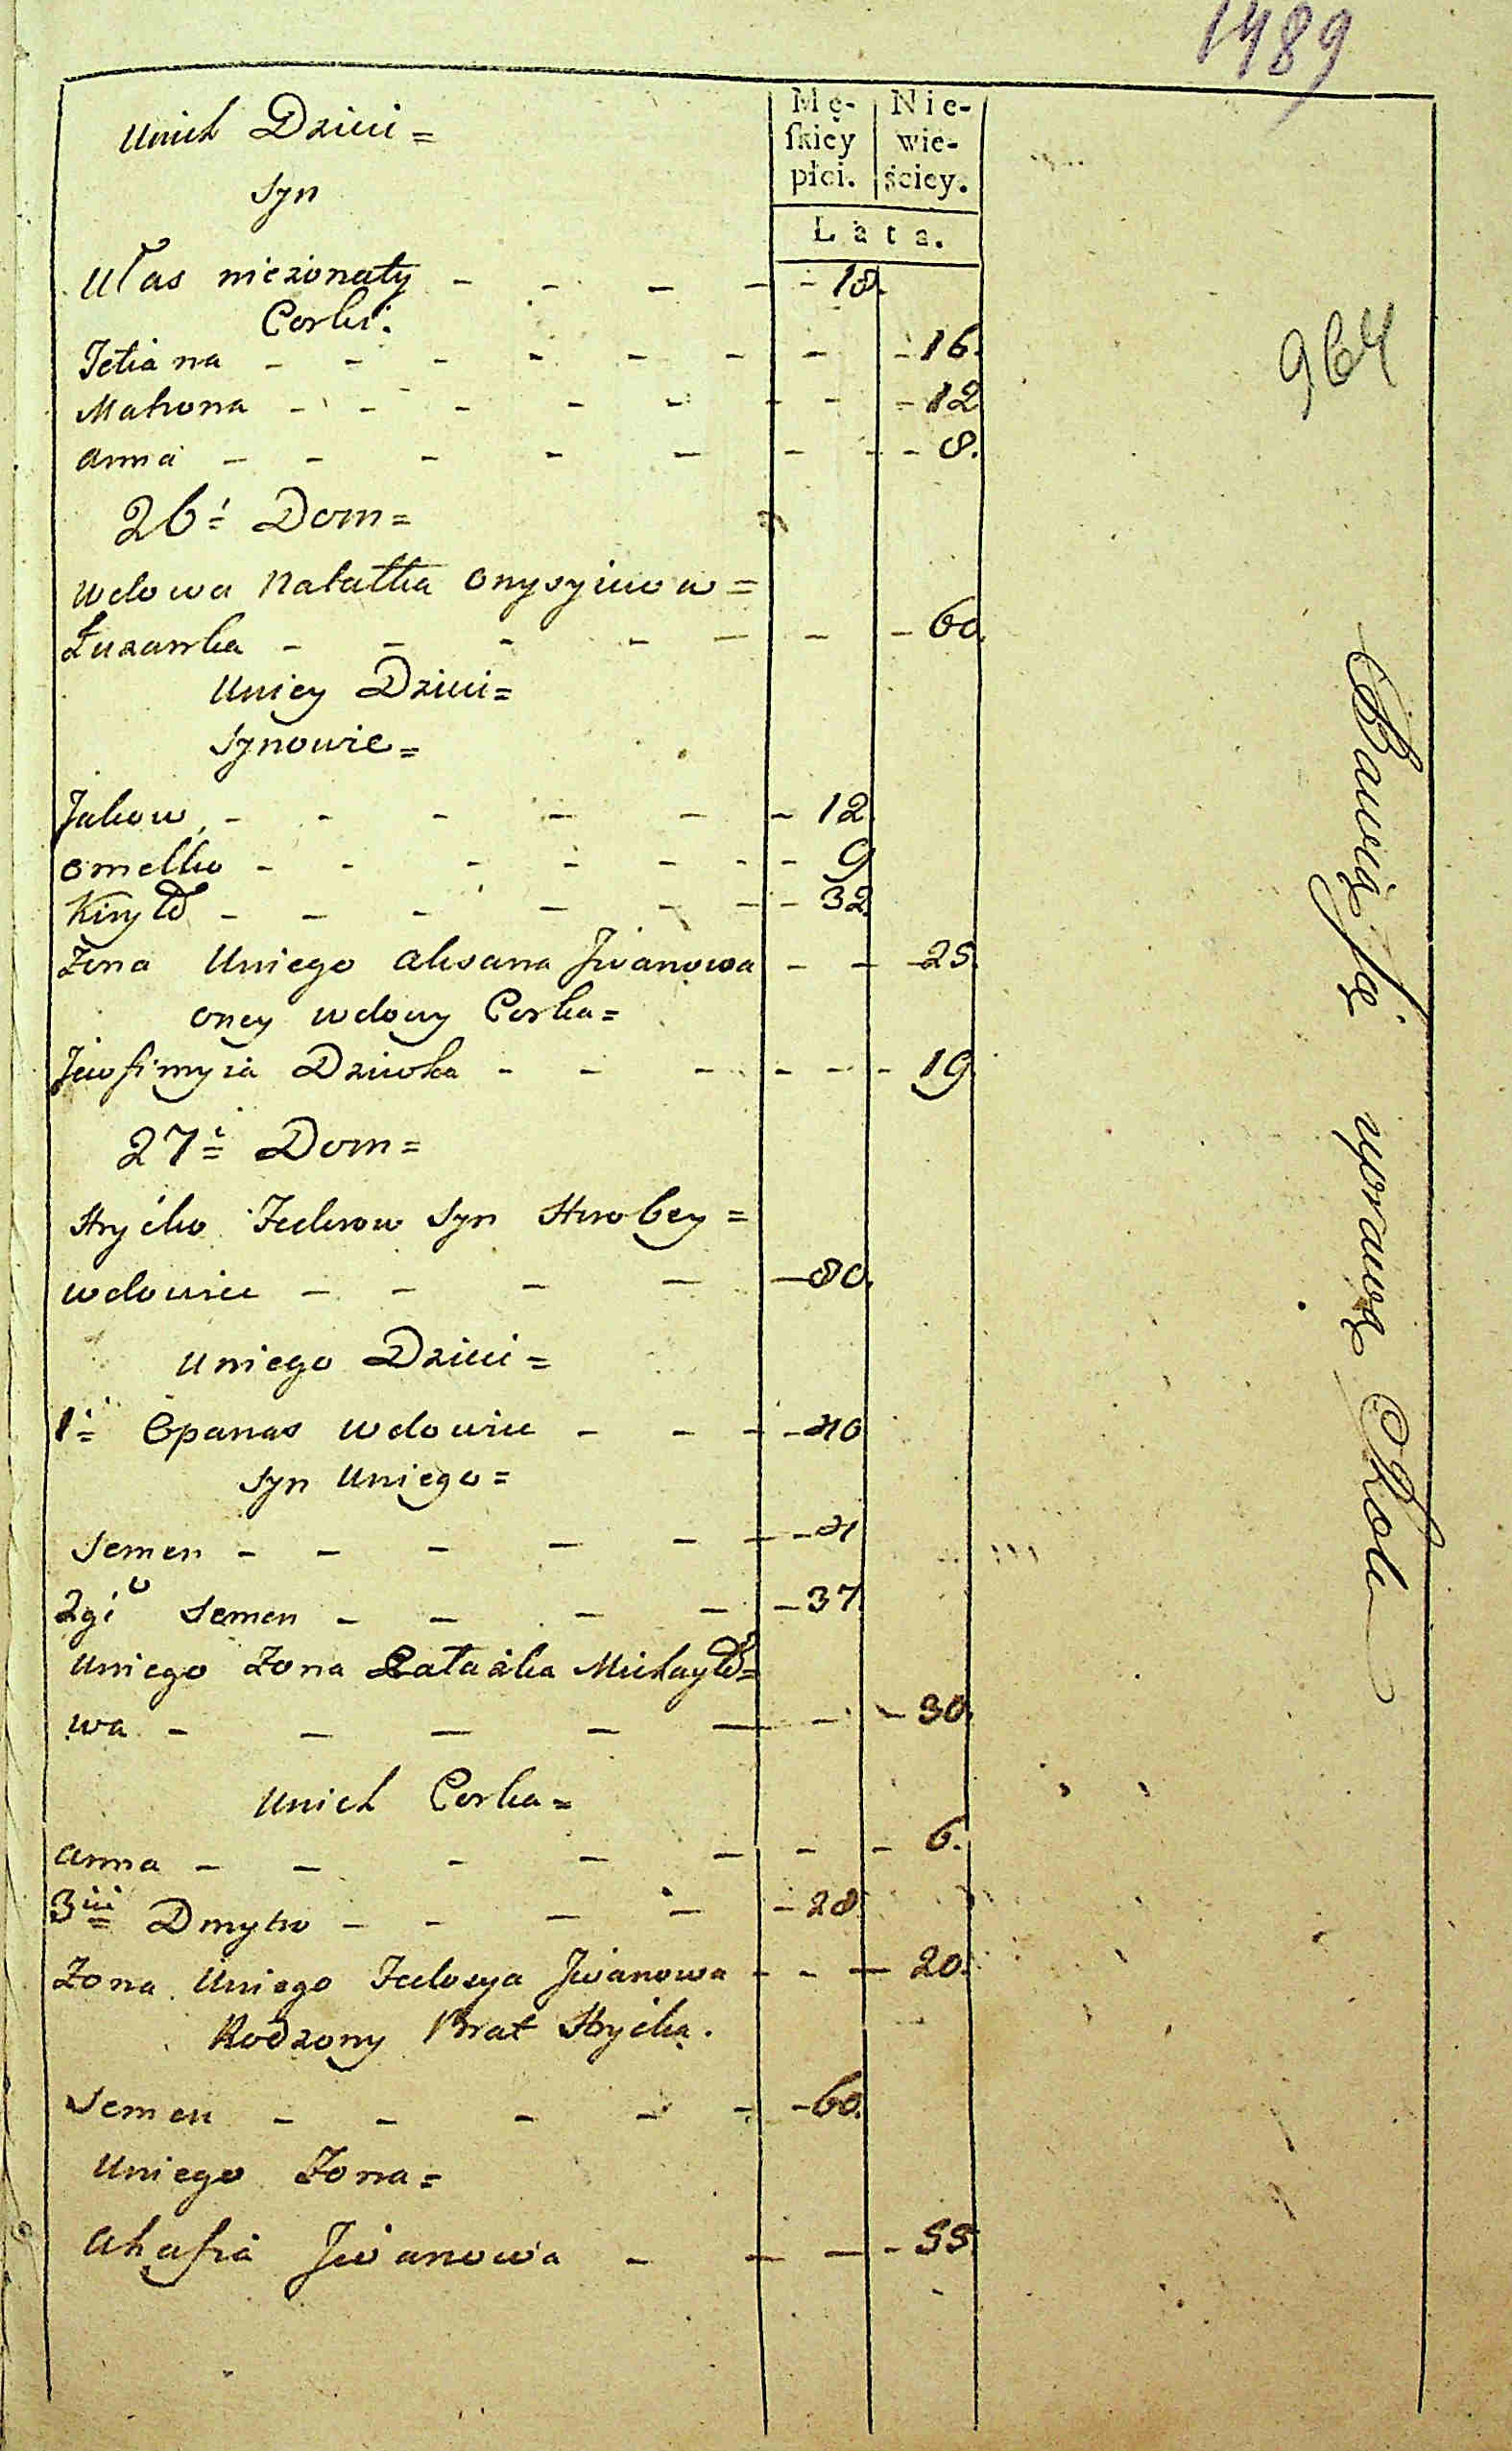 1489
Mę- Nie-
skiey wie-
płci. ściey.
Lata.
Unich Dzieci =
Syn
Ułas nieżonaty - - - - - 18.
Corki.
Tetiana - - - - - - - - 16.
Matrona - - - - - - - - 12
anna - - - - - - - - 8.
964
26i Dom =
Wdowa Natałka Onysyiowa =
Łuzanka - - - - - - - 60.
Uniey Dzieci =
Synowie =
Jakow - - - - - - 12.
Omelko - - - - - - - 9
Kiryło - - - - - - - 32.
Żona Uniego Aksana Jwanowa - - - 25.
oney wdowy Corka =
Jewfimyia Dziewka - - - - - - 19.
27i Dom =
Hryćko Fedorow Syn Horobey =
wdowiec - - - - - 80.
Uniego Dzieci =
1i Opanas wdowiec - - - - 40
Syn Uniego =
Semen - - - - - - - 4
2gi Semen - - - - - 37.
Uniego Żona Michayło=
wa - - - - - - - 30.
Unich Corka =
Anna - - - - - - - 6.
3ii Dmytro - - - - - 28.
Żona Uniego Fedosya Jwanowa - - - 20.
Rodzony Brat Hryćka.
Semen - - - - - - 60.
Uniego Żona =
Ahafia Jwanowa - - - - 55.
Bawią się uprawą Roli